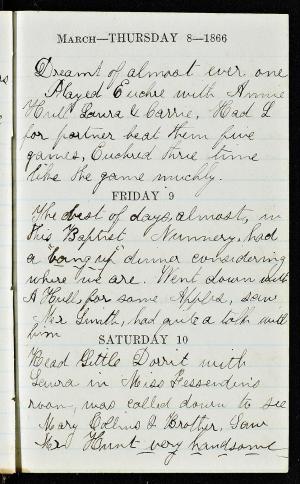 MARCH—THURSDAY 8—1866
Dreamt of almost ever one
Played Euchre with Annie
Hull Laura & Carrie, Had L
for partner beat them five
games, Euchred thric time
like the game muchly.
FRIDAY 9
The best of days, almost, in
this Baptist Nunnery, had
a "bang up" dinner considering
where we are. Went down with
A Hull, for some Apples, saw
Mr Smith, had quite a talk with
him
SATURDAY 10
Read Little Dorrit with
Laura in Miss Fessendin's
room, was called down to see
Mary Collins & Brother, Saw
Mr Hunt very handsome